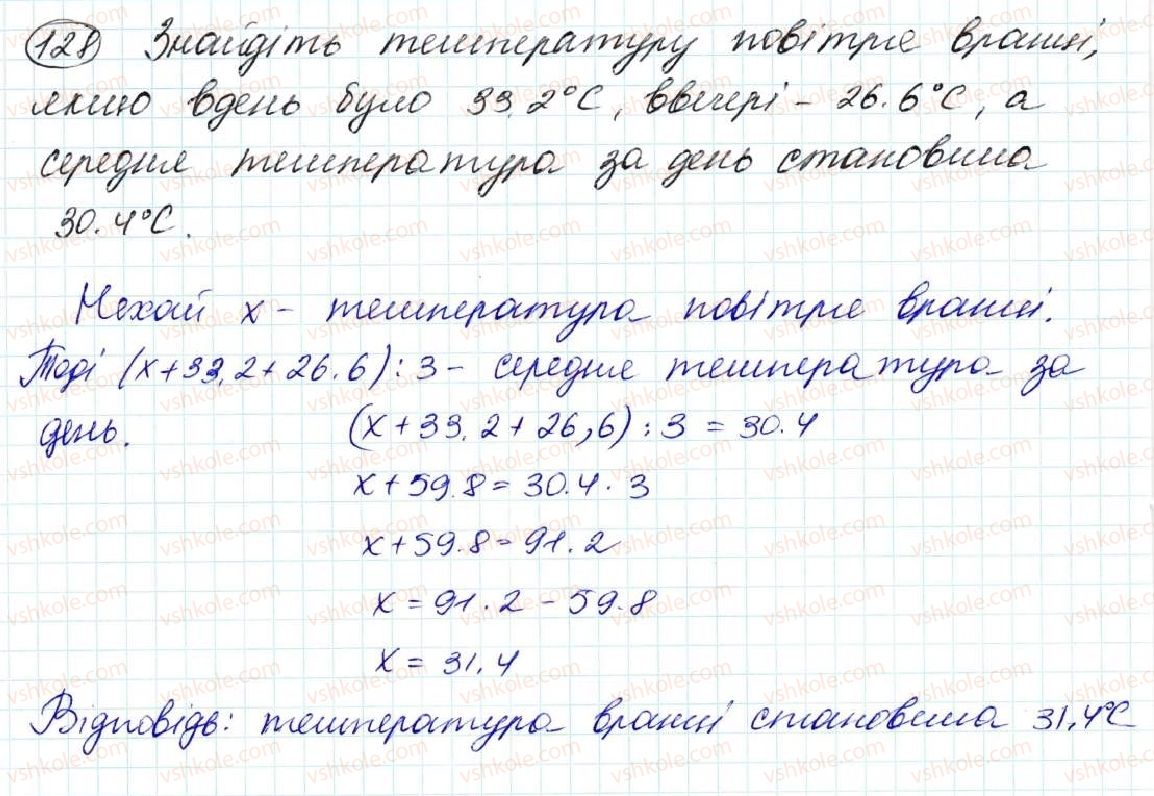 128 Знайдіть температуру повітря вранці,
якщо вдень було 33.2°С, ввечері - 26.6°С, а
середня температура за день становила
30.4°С.
Нехай х - температура повітря вранці.
Тоді (х+33,2+26.6):3 - середня температура за
день. (х+33.2+26,6):3=30.4
х+59.8=30.4·3
х+59.8=91.2
х=91.2-59.8
х=31,4
Відповідь: температура вранці становила 31,4°С